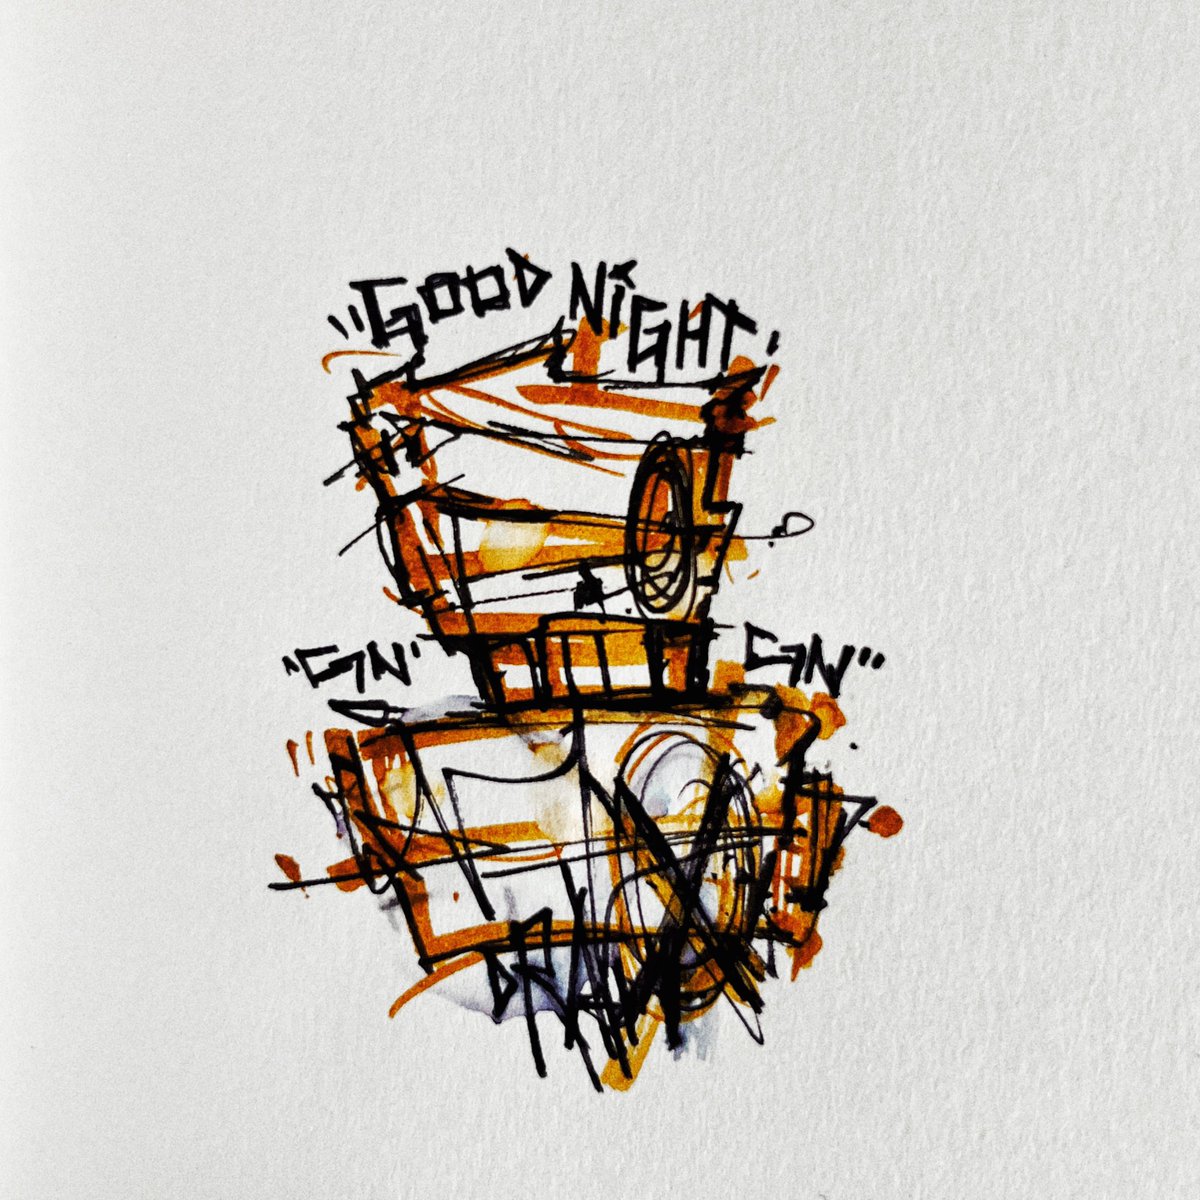 "GOOD NiGHT'
"GN' GN"